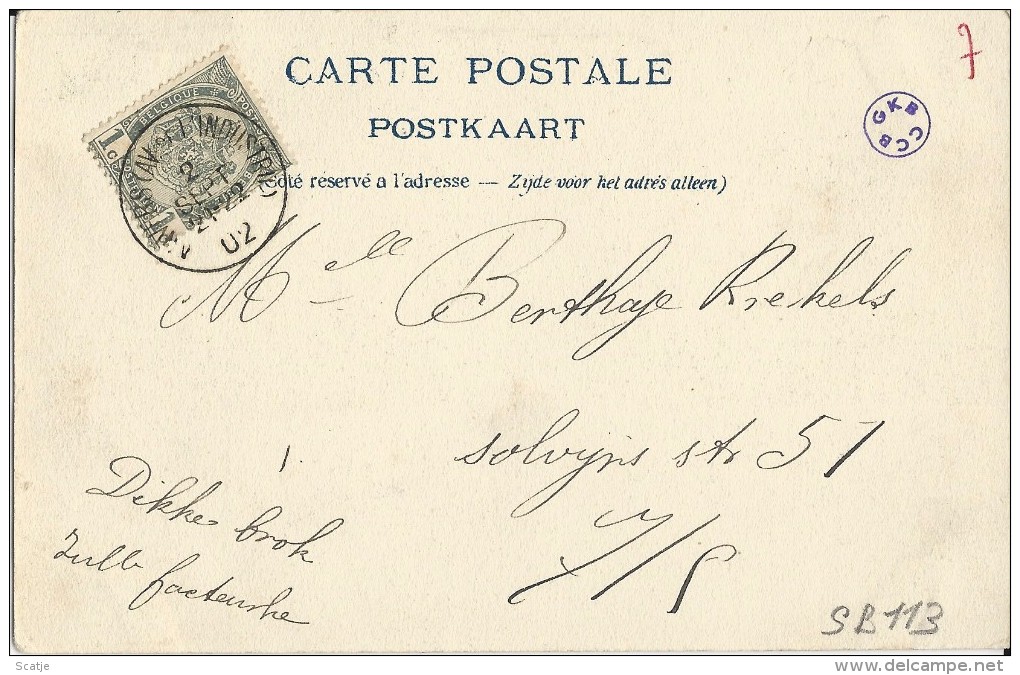 CARTE POSTALE
POSTKAART
Côté réservé a l'adresse — Zijde voor het adrés alleen)
7
GKB CCB
BELGIQUE
1c
ANVERS (AV. DE L'INDUSTRIE)
2
SEPT
21-22
02
Melle Berthaje Krekels
Solvijns str 51
Dikke brok
SB113
Scatje
www.delcampe.net